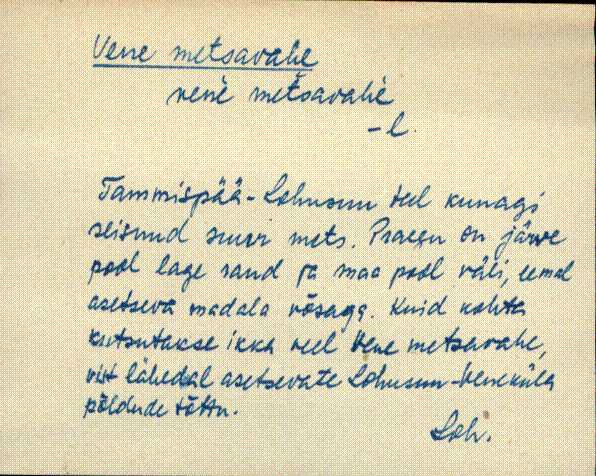 Vene metsavahe
veǹe metsavahè
-l.
Tammispää-Lohusuu teel kunagi
seisnud suur mets. Praegu on järve
pool lage rand ja maa pool väli, eemal
asetseva madala võsaga. Kuid kohta
kutsutakse ikka veel Vene metsavahe,
vist lähedal asetsevate Lohusuu-Veneküla
põldude tõttu.
Loh.